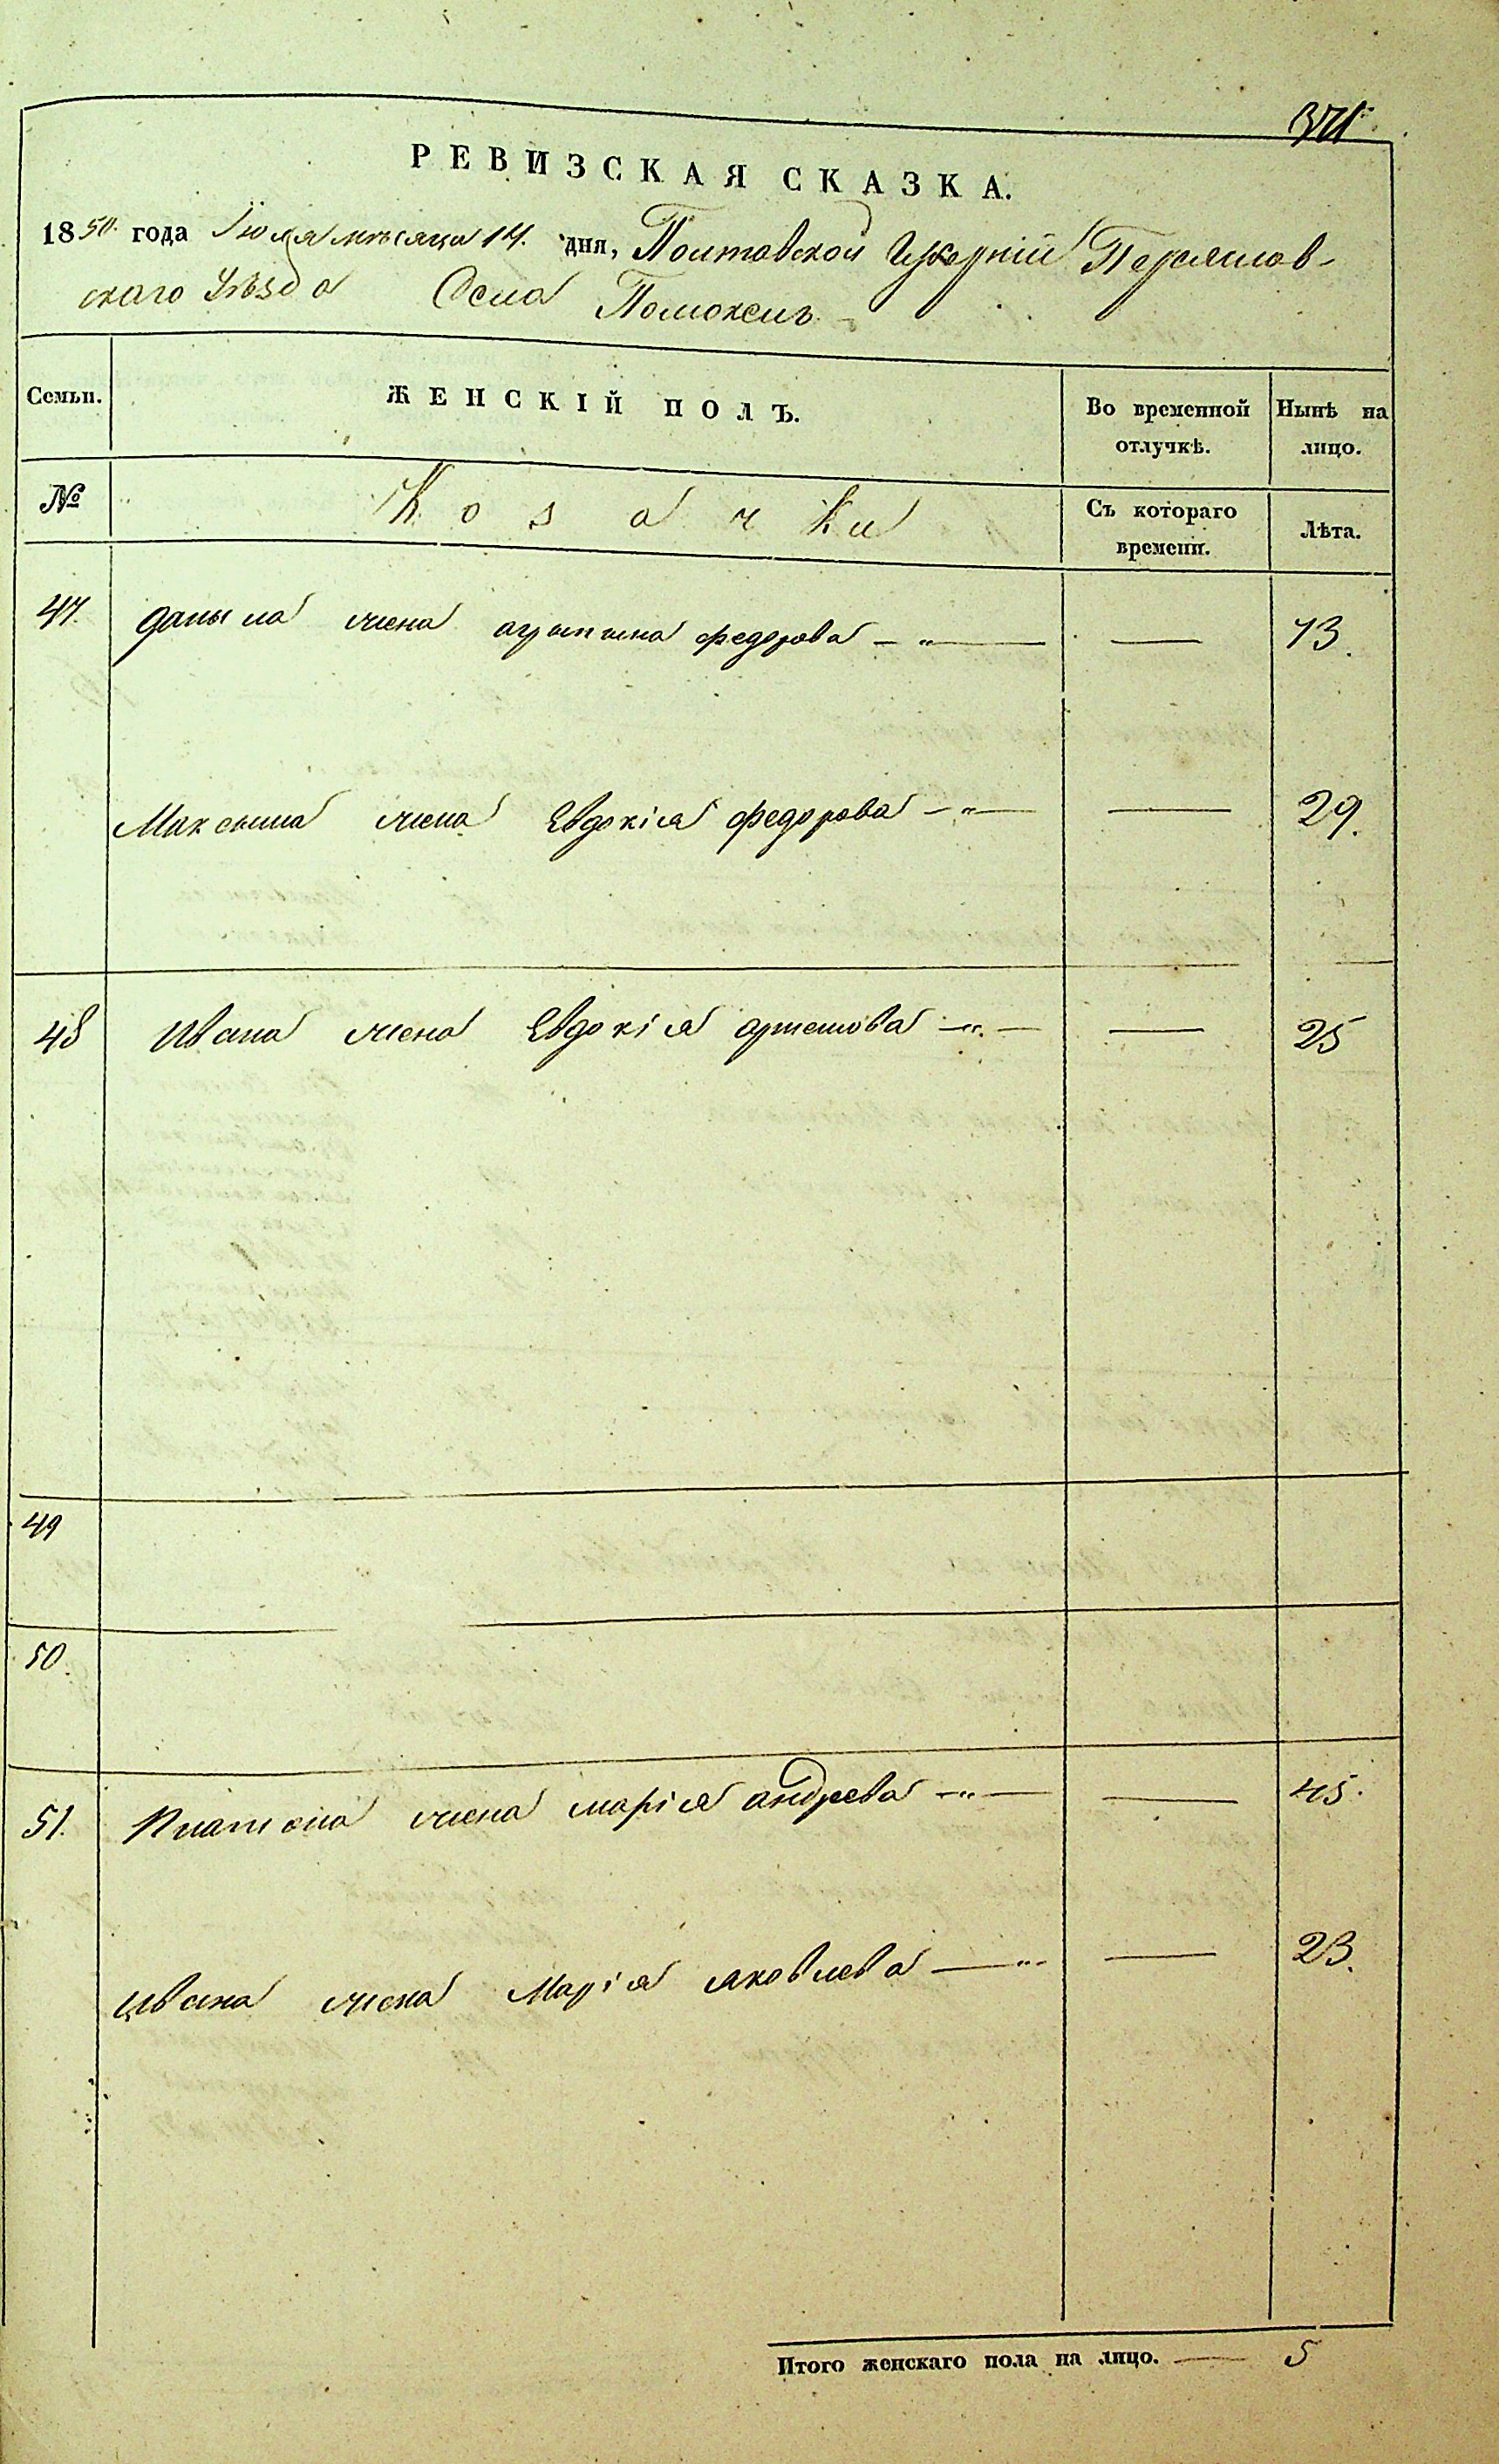 371
РЕВИЗСКАЯ СКАЗКА.
1850. года Іюля мѣсяца 14. дня, Полтавской Губерніи Переяслов-
скаго Уѣзда Села Помоклей
Семьи. ЖЕНСКІЙ ПОЛЪ. Во временной отлучкѣ. Нынѣ на лицо.
№ Козачки Съ котораго времени. Лѣта.
47. Даныла жена агрыпына федорова — „ — — 73.
Максыма жена Евдокія федорова — „ — — 29.
48 Ивана жена Евдокія артемова — „ — — 25
49
50.
51. Платона жена марія андреева — „ — — 45.
Ивана жена Марія яковлева — „ — 23.
Итого женскаго пола на лицо. — 5